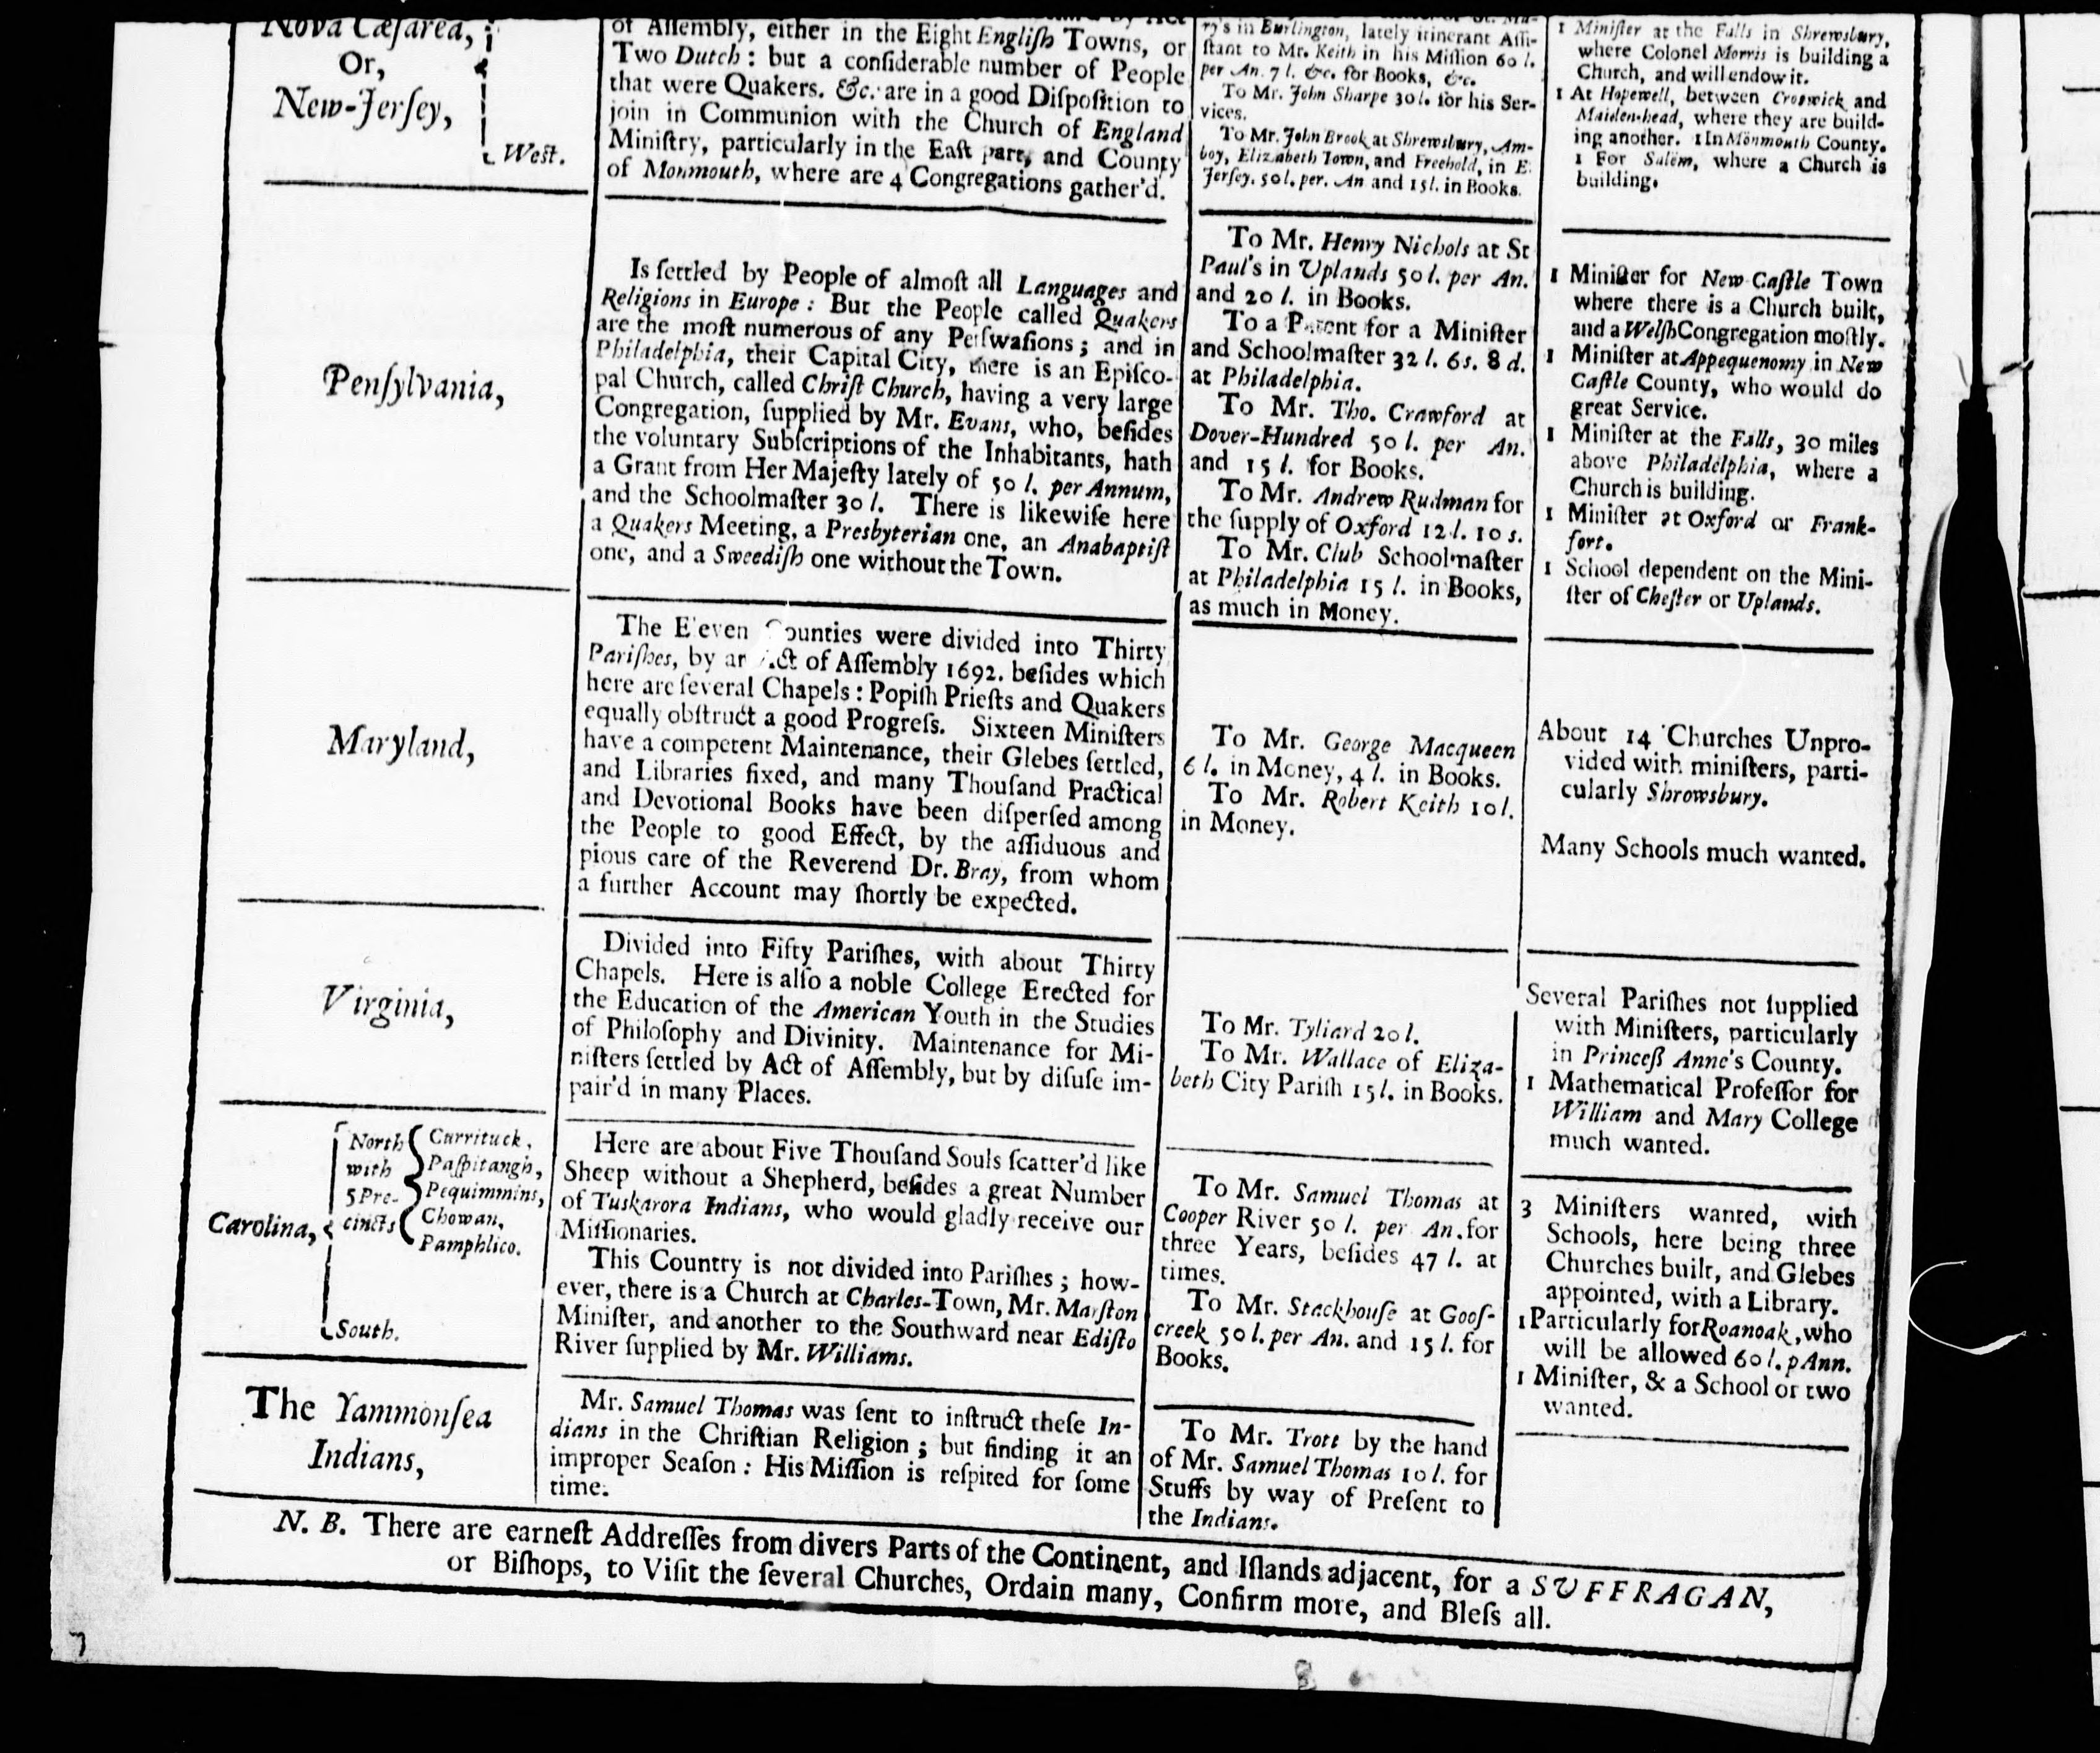 Nova Cæſarea,
Or,
New-Jerſey,
West.
of Aſſembly, either in the Eight Engliſh Towns, or
Two Dutch: but a conſiderable number of People
that were Quakers. &c. are in a good Diſpoſition to
join in Communion with the Church of England
Miniſtry, particularly in the Eaſt part, and County
of Monmouth, where are 4 Congregations gather'd.
ry's in Burlington, lately itinerant Aſſi-
ſtant to Mr. Keith in his Miſſion 60 l.
per An. 7 l. &c. for Books, &c.
To Mr. John Sharpe 30 l. for his Ser-
vices.
To Mr. John Brook at Shrewsbury, Am-
boy, Elizabeth Town, and Freehold, in E.
Jerſey. 50 l. per. An and 15 l. in Books.
1 Miniſter at the Falls in Shrewsbury,
where Colonel Morris is building a
Church, and will endow it.
1 At Hopewell, between Croſwick and
Maiden-head, where they are build-
ing another. 1 In Monmouth County.
1 For Salem, where a Church is
building.
Penſylvania,
Is ſettled by People of almoſt all Languages and
Religions in Europe: But the People called Quakers
are the moſt numerous of any Perſwaſions; and in
Philadelphia, their Capital City, there is an Epiſco-
pal Church, called Chriſt Church, having a very large
Congregation, ſupplied by Mr. Evans, who, beſides
the voluntary Subſcriptions of the Inhabitants, hath
a Grant from Her Majeſty lately of 50 l. per Annum,
and the Schoolmaſter 30 l. There is likewiſe here
a Quakers Meeting, a Presbyterian one, an Anabaptiſt
one, and a Sweediſh one without the Town.
To Mr. Henry Nichols at St
Paul's in Uplands 50 l. per An.
and 20 l. in Books.
To a Patent for a Miniſter
and Schoolmaſter 32 l. 6s. 8 d.
at Philadelphia.
To Mr. Tho. Crawford at
Dover-Hundred 50 l. per An.
and 15 l. for Books.
To Mr. Andrew Rudman for
the ſupply of Oxford 12 l. 10 s.
To Mr. Club Schoolmaſter
at Philadelphia 15 l. in Books,
as much in Money.
1 Miniſter for New Caſtle Town
where there is a Church built,
and a Welſh Congregation moſtly.
1 Miniſter at Appequenomy in New
Caſtle County, who would do
great Service.
1 Miniſter at the Falls, 30 miles
above Philadelphia, where a
Church is building.
1 Miniſter at Oxford or Frank-
fort.
1 School dependent on the Mini-
ſter of Cheſter or Uplands.
Maryland,
The Eleven Counties were divided into Thirty
Pariſhes, by an Act of Aſſembly 1692. beſides which
here are ſeveral Chapels: Popiſh Prieſts and Quakers
equally obſtruct a good Progreſs. Sixteen Miniſters
have a competent Maintenance, their Glebes ſettled,
and Libraries fixed, and many Thouſand Practical
and Devotional Books have been diſperſed among
the People to good Effect, by the aſſiduous and
pious care of the Reverend Dr. Bray, from whom
a further Account may ſhortly be expected.
To Mr. George Macqueen
6 l. in Money, 4 l. in Books.
To Mr. Robert Keith 10 l.
in Money.
About 14 Churches Unpro-
vided with miniſters, parti-
cularly Shrowsbury.
Many Schools much wanted.
Virginia,
Divided into Fifty Pariſhes, with about Thirty
Chapels. Here is alſo a noble College Erected for
the Education of the American Youth in the Studies
of Philoſophy and Divinity. Maintenance for Mi-
niſters ſettled by Act of Aſſembly, but by diſuſe im-
pair'd in many Places.
To Mr. Tyliard 20 l.
To Mr. Wallace of Eliza-
beth City Pariſh 15 l. in Books.
Several Pariſhes not ſupplied
with Miniſters, particularly
in Princeſs Anne's County.
1 Mathematical Profeſſor for
William and Mary College
much wanted.
Carolina,
North
with
5 Pre-
cincts
Currituck,
Paſpitangh,
Pequimmins,
Chowan,
Pamphlico.
South.
Here are about Five Thouſand Souls ſcatter'd like
Sheep without a Shepherd, beſides a great Number
of Tuskarora Indians, who would gladly receive our
Miſſionaries.
This Country is not divided into Pariſhes; how-
ever, there is a Church at Charles-Town, Mr. Marſton
Miniſter, and another to the Southward near Ediſto
River ſupplied by Mr. Williams.
To Mr. Samuel Thomas at
Cooper River 50 l. per An. for
three Years, beſides 47 l. at
times.
To Mr. Stackhouſe at Gooſ-
creek 50 l. per An. and 15 l. for
Books.
3 Miniſters wanted, with
Schools, here being three
Churches built, and Glebes
appointed, with a Library.
1 Particularly for Roanoak, who
will be allowed 60 l. p Ann.
1 Miniſter, & a School or two
wanted.
The Yammonſea
Indians,
Mr. Samuel Thomas was ſent to inſtruct theſe In-
dians in the Chriſtian Religion; but finding it an
improper Seaſon: His Miſſion is reſpited for ſome
time.
To Mr. Trott by the hand
of Mr. Samuel Thomas 10 l. for
Stuffs by way of Preſent to
the Indians.
N. B. There are earneſt Addreſſes from divers Parts of the Continent, and Iſlands adjacent, for a SUFFRAGAN,
or Biſhops, to Viſit the ſeveral Churches, Ordain many, Confirm more, and Bleſs all.
7